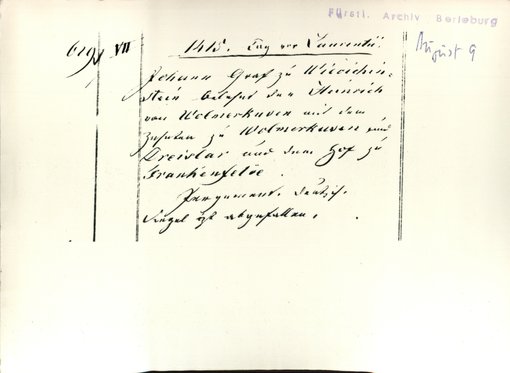 Fürstl. Archiv Berleburg
August 9
VII 1415. Tag vor Laurentii.
Johann Graf zu
belehnt den Heinrich
von Wolmerkusen mit dem
Zehnten zu Wolmerkusen und
Dreislar und dem Hof zu
Frankenfelde.
Pergament. Deutsch.
Siegel ist abgefallen.